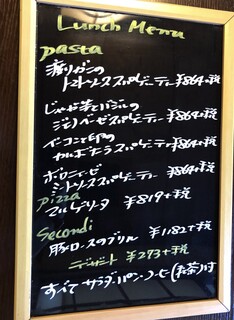 Lunch Menu
pasta
トマトソーススパゲーティー ¥864+税
じゃが芋とバジルの
ジェノベーゼスパゲーティー ¥864+税
ベーコンと卵の
カルボナーラスパゲーティー ¥864+税
ボロニェーゼ
ミートソーススパゲーティー ¥864+税
pizza
マルゲリータ ¥819+税
Secondi
豚ロースのグリル ¥1182+税
デザート ¥273+税
すべて サラダ・パン・コーヒー(紅茶)付